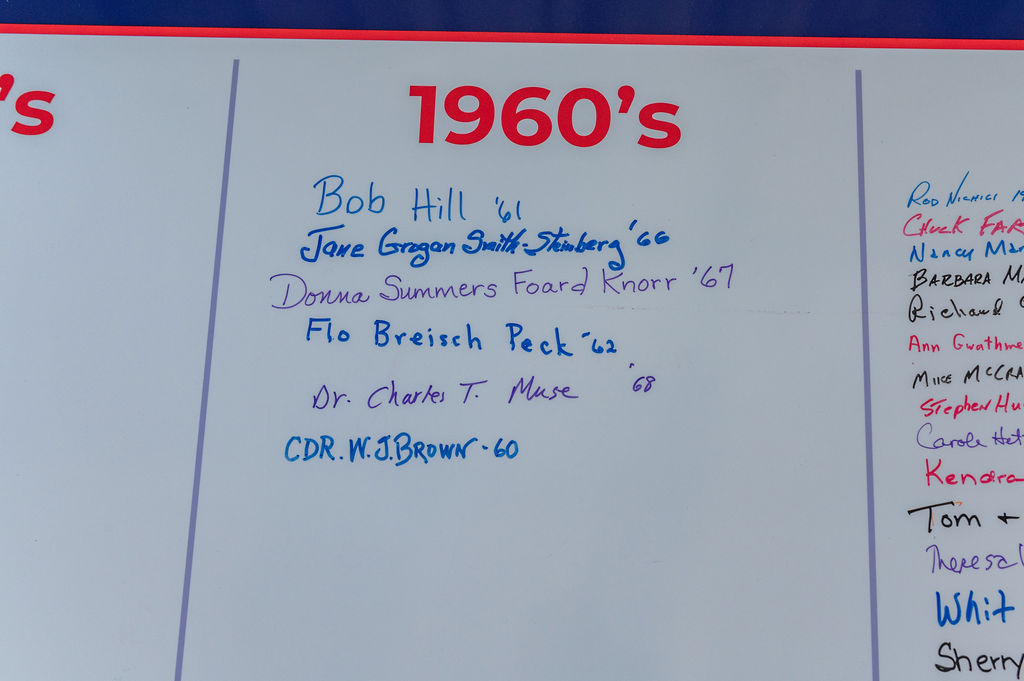 's
1960's
Bob Hill '61
Jane Grogan Smith-Steinberg '66
Donna Summers Foard Knorr '67
Flo Breisch Peck -'62
Dr. Charles T. Muse '68
CDR. W.J. BROWN - 60
ROD
CHUCK FAR
Nancy Mar
BARBARA MA
Richard
Ann Gwathme
MIKE MCCRA
Stephen Hu
Carole Het
Kendra
Tom +
Theresa
Whit
Sherry